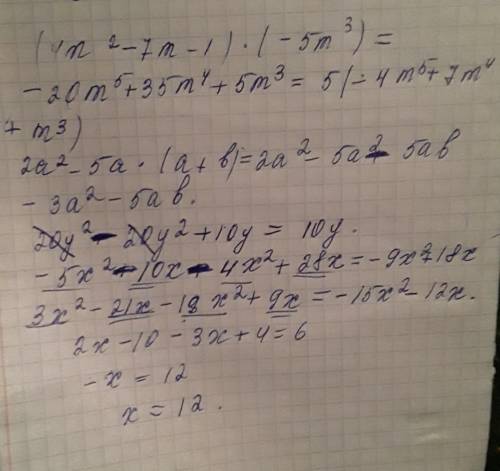 (4m² - 7m - 1) · (- 5m³) =
- 20m⁵ + 35m⁴ + 5m³ = 5(- 4m⁵ + 7m⁴
+ m³)
2a² - 5a · (a + b) = 2a² - 5a² - 5ab
- 3a² - 5ab.
20y² - 20y² + 10y = 10y.
- 5x² - 10x - 4x² + 28x = - 9x² + 18x
3x² - 21x - 18x² + 9x = - 15x² - 12x.
2x - 10 - 3x + 4 = 6
- x = 12
x = 12.